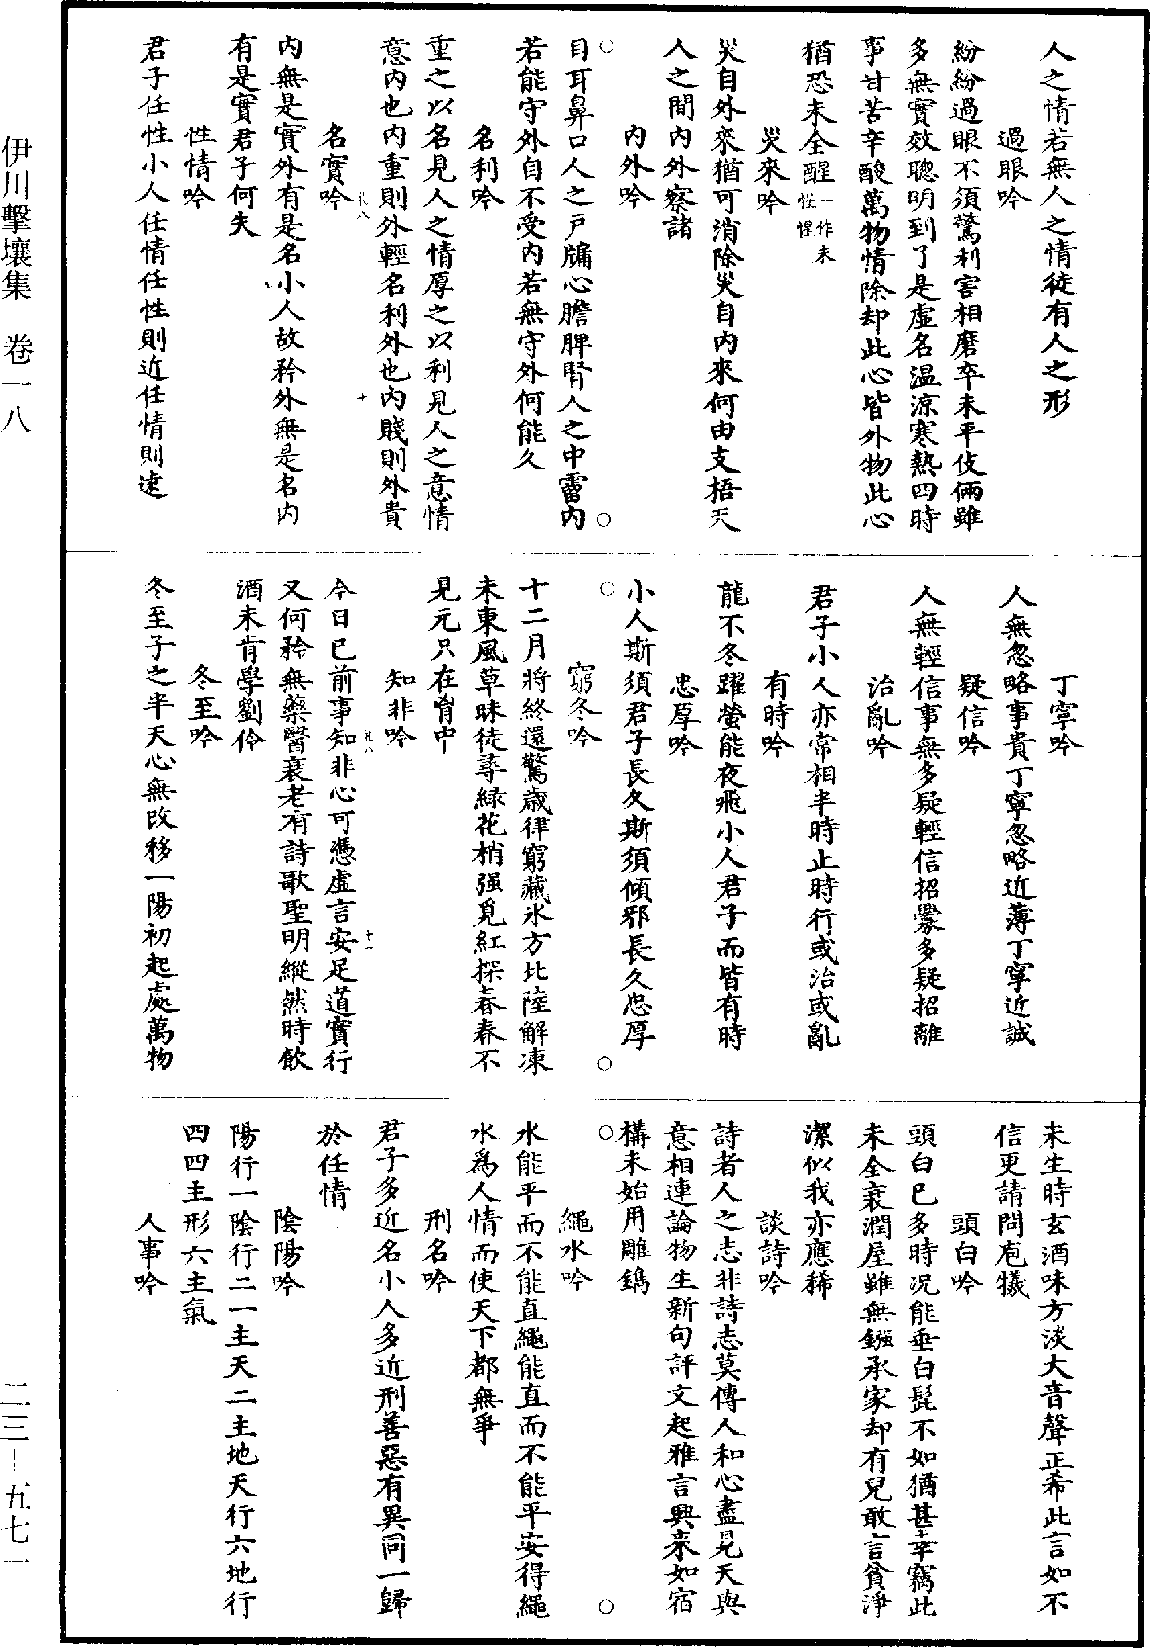 人之情若無人之情徒有人之形
過眼吟
紛紛過眼不須驚利害相磨卒未平伎倆雖
多無實效聰明到了是虛名温涼寒熱四時
事甘苦辛酸萬物情除却此心皆外物此心
猶恐未全醒一作未性惺
災來吟
災自外來猶可消除災自内來何由支梧天
人之間内外察諸
内外吟
目耳鼻口人之戸牖心膽脾腎人之中霤内
若能守外自不受内若無守外何能久
名利吟
重之以名見人之情厚之以利見人之意情
意内也内重則外輕名利外也内賤則外貴
名實吟
内無是實外有是名小人故矜外無是名内
有是實君子何失
性情吟
君子任性小人任情任性則近任情則逺
丁寧吟
人無忽略事貴丁寧忽略近薄丁寧近誠
疑信吟
人無輕信事無多疑輕信招釁多疑招離
治亂吟
君子小人亦常相半時止時行或治或亂
有時吟
龍不冬躍螢能夜飛小人君子而皆有時
忠厚吟
小人斯須君子長久斯須傾邪長久忠厚
窮冬吟
十二月將終還驚歲律窮藏氷方北陸解凍
未東風草昧徒尋緑花梢强覓紅探春春不
見元只在胷中
知非吟
今日已前事知非心可憑虛言安足道實行
又何矜無藥醫衰老有詩歌聖明縱然時飲
酒未肯學劉伶
冬至吟
冬至子之半天心無改移一陽初起處萬物
未生時玄酒味方淡大音聲正希此言如不
信更請問庖犧
頭白吟
頭白已多時况能垂白髭不如猶甚幸竊此
未全衰潤屋雖無鏹承家却有兒敢言貧淨
潔似我亦應稀
談詩吟
詩者人之志非詩志莫傳人和心盡見天與
意相連論物生新句評文起雅言興來如宿
構未始用雕鐫
繩水吟
水能平而不能直繩能直而不能平安得繩
水爲人情而使天下都無爭
刑名吟
君子多近名小人多近刑善惡有異同一歸
於任情
陰陽吟
陽行一陰行二一主天二主地天行六地行
四四主形六主氣
人事吟
伊川擊壤集　卷一八
二三－五七一